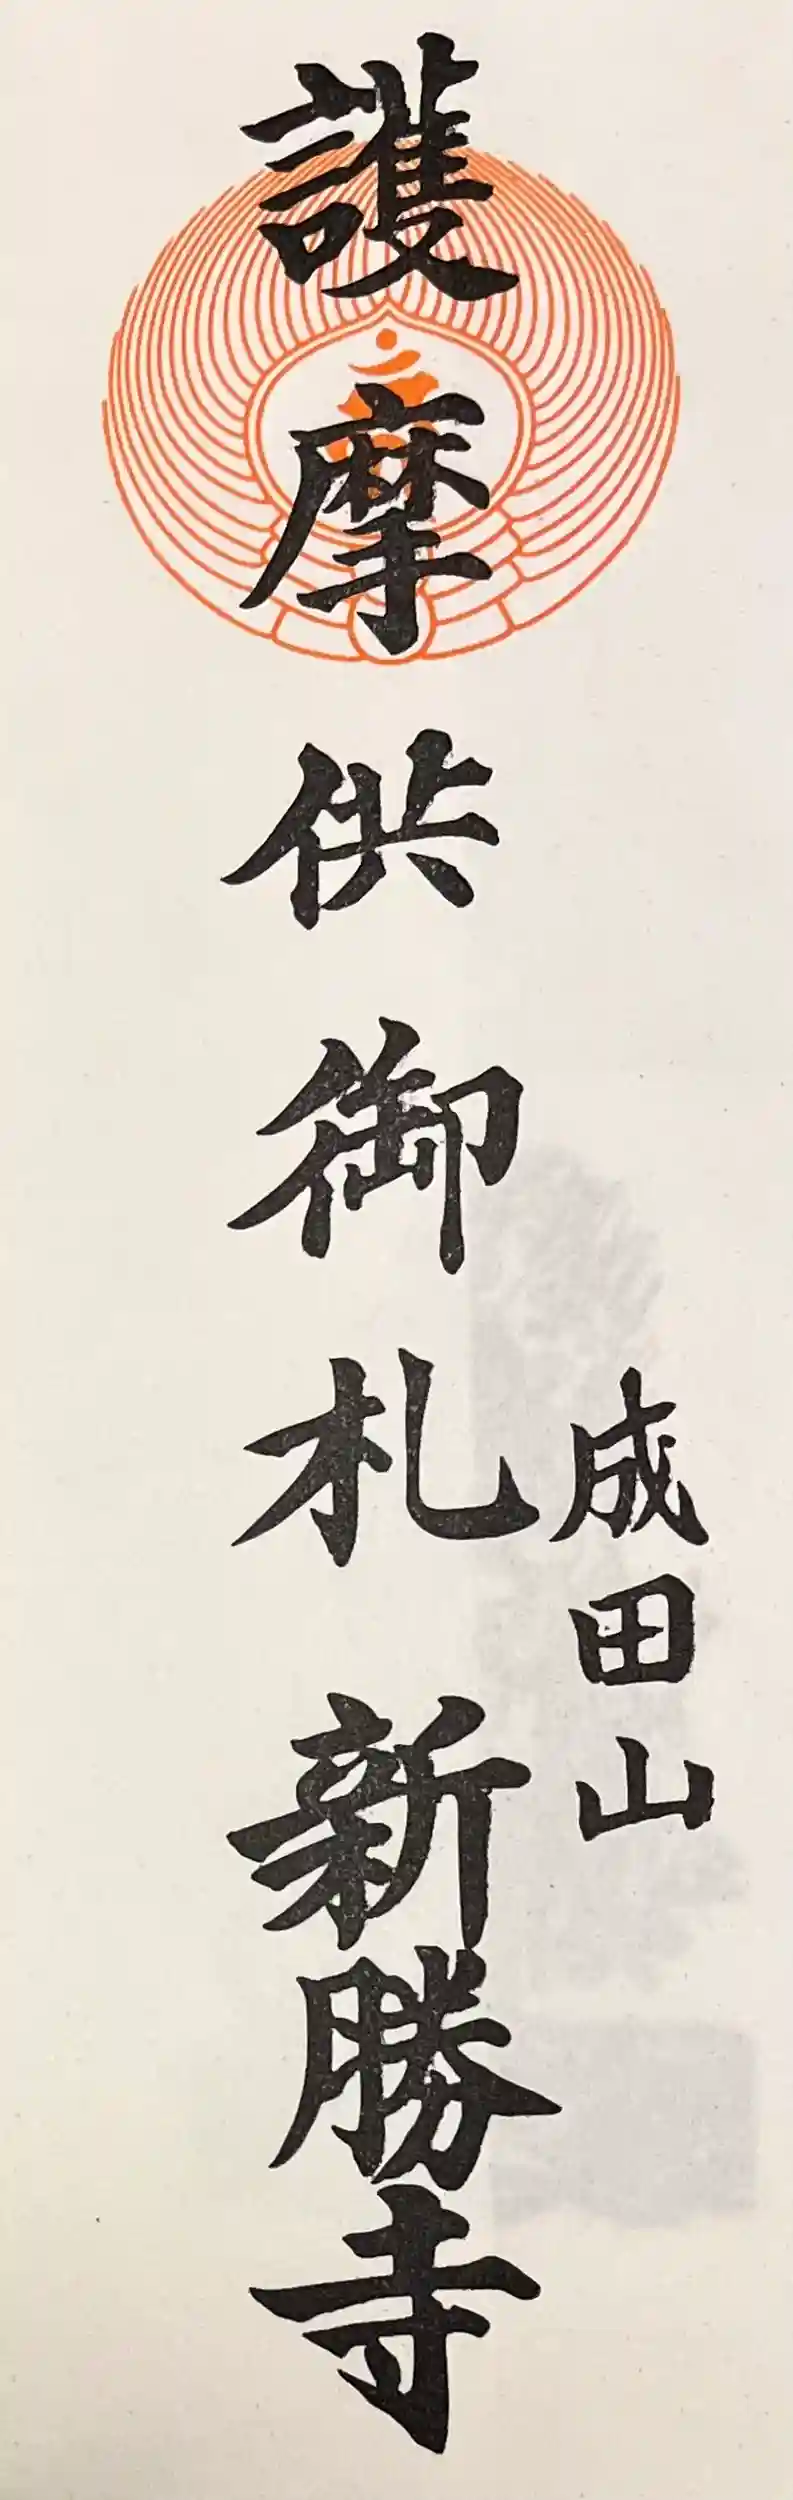 成田山
護摩供御札 新勝寺